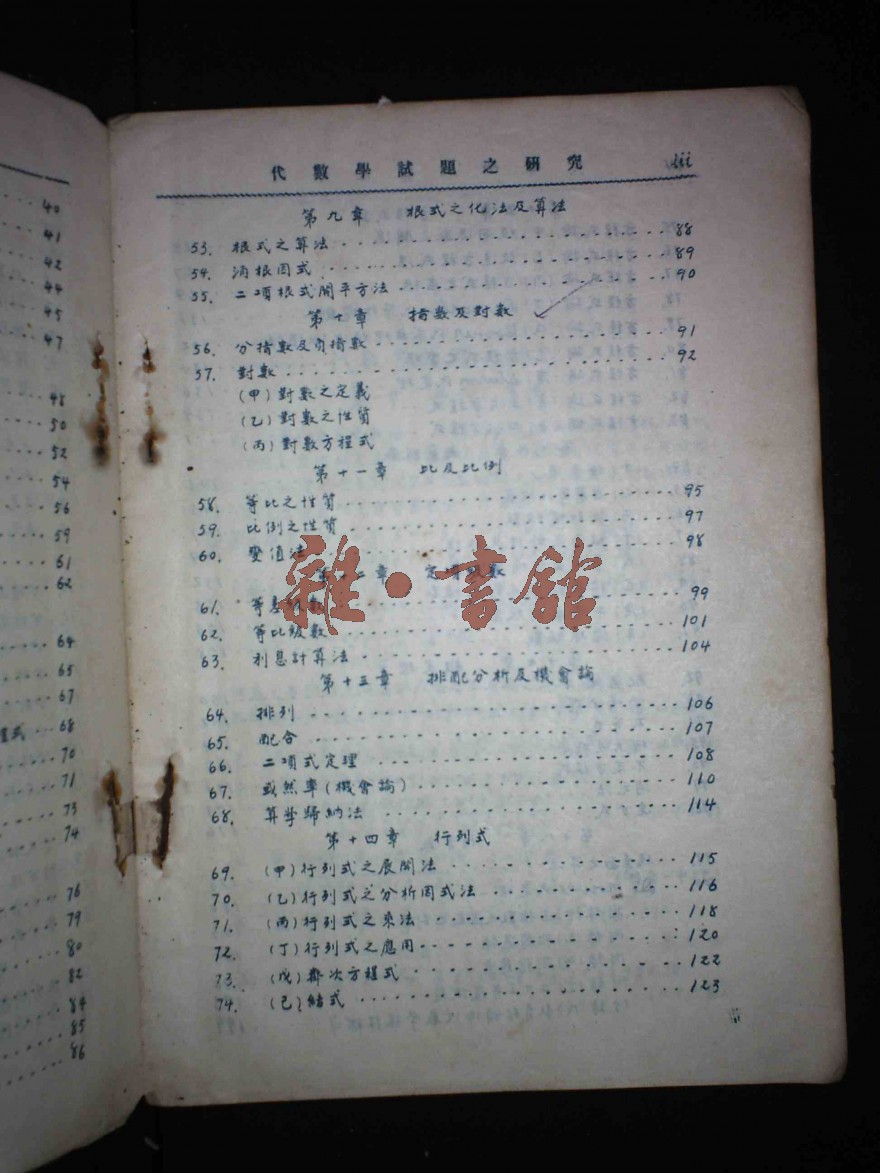 40
41
42
44
45
47
48
50
52
54
56
59
61
62
64
65
67
程式 68
70
71
73
74
76
79
80
82
84
85
86
代數學試題之研究 iii
第九章 根式之化法及算法
53. 根式之算法 88
54. 消根因式 89
55. 二項根式開平方法 90
第十章 指數及對數
56. 分指數及負指數 91
57. 對數 92
(甲)對數之定義
(乙)對數之性質
(丙)對數方程式
第十一章 比及比例
58. 等比之性質 95
59. 比例之性質 97
60. 變值法 98
第十二章
61. 99
62. 等比級數 101
63. 利息計算法 104
雜·書館
第十三章 排配分析及機會論
64. 排列 106
65. 配合 107
66. 二項式定理 108
67. 或然率(機會論) 110
68. 算學歸納法 114
第十四章 行列式
69. (甲)行列式之展開法 115
70. (乙)行列式之分析因式法 116
71. (丙)行列式之乘法 118
72. (丁)行列式之應用 120
73. (戊)齊次方程式 122
74. (己)結式 123